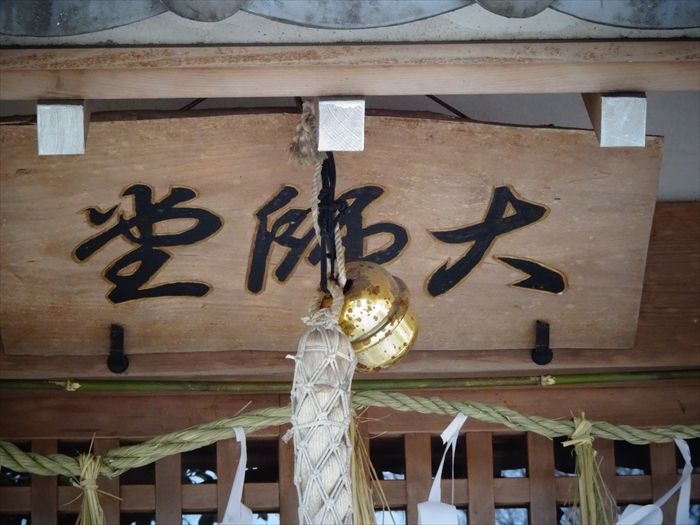 大師堂